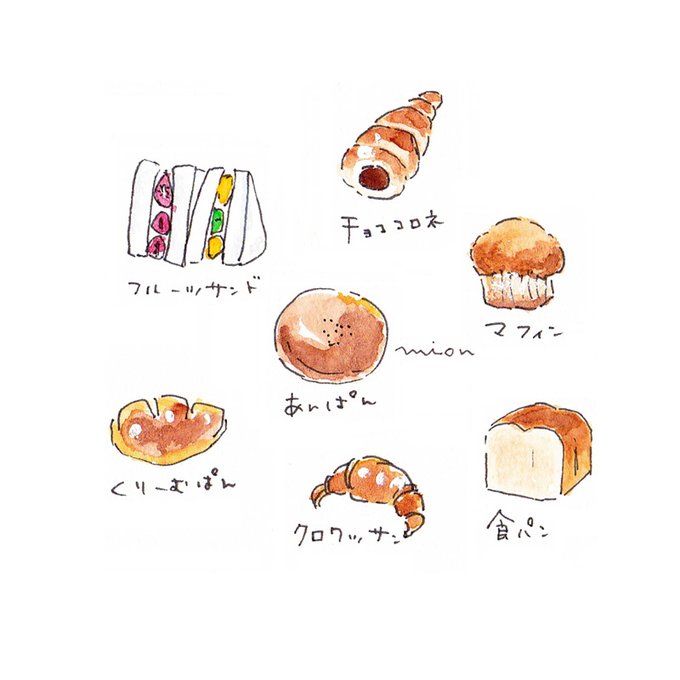 チョココロネ
フルーツサンド
マフィン
mion
あんぱん
くりーむぱん
クロワッサン
食パン